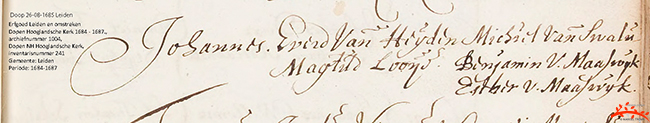 Doop 26-08-1685 Leiden
Erfgoed Leiden en omstreken
Dopen Hooglandsche Kerk 1684 - 1687.,
archiefnummer 1004,
Dopen NH Hooglandsche Kerk,
inventarisnummer 241
Gemeente: Leiden
Periode: 1684-1687
Johannes. Everd Van Heyden Michiel Van Swalu
Magtild Looys. Benjamin V. Maaswyk
Esther V. Maaswyk.